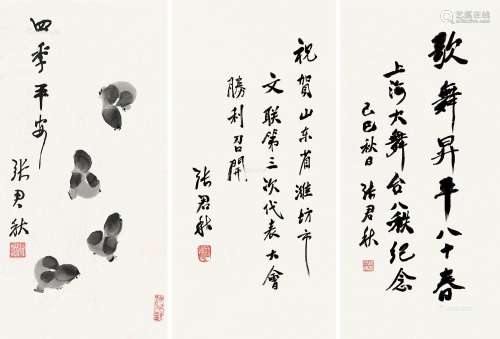 歌舞昇平八十春
上海大舞台八秩纪念
己巳秋日
张君秋
祝贺山东省潍坊市
文联第三次代表大會
勝利召開
张君秋
四季平安
张君秋